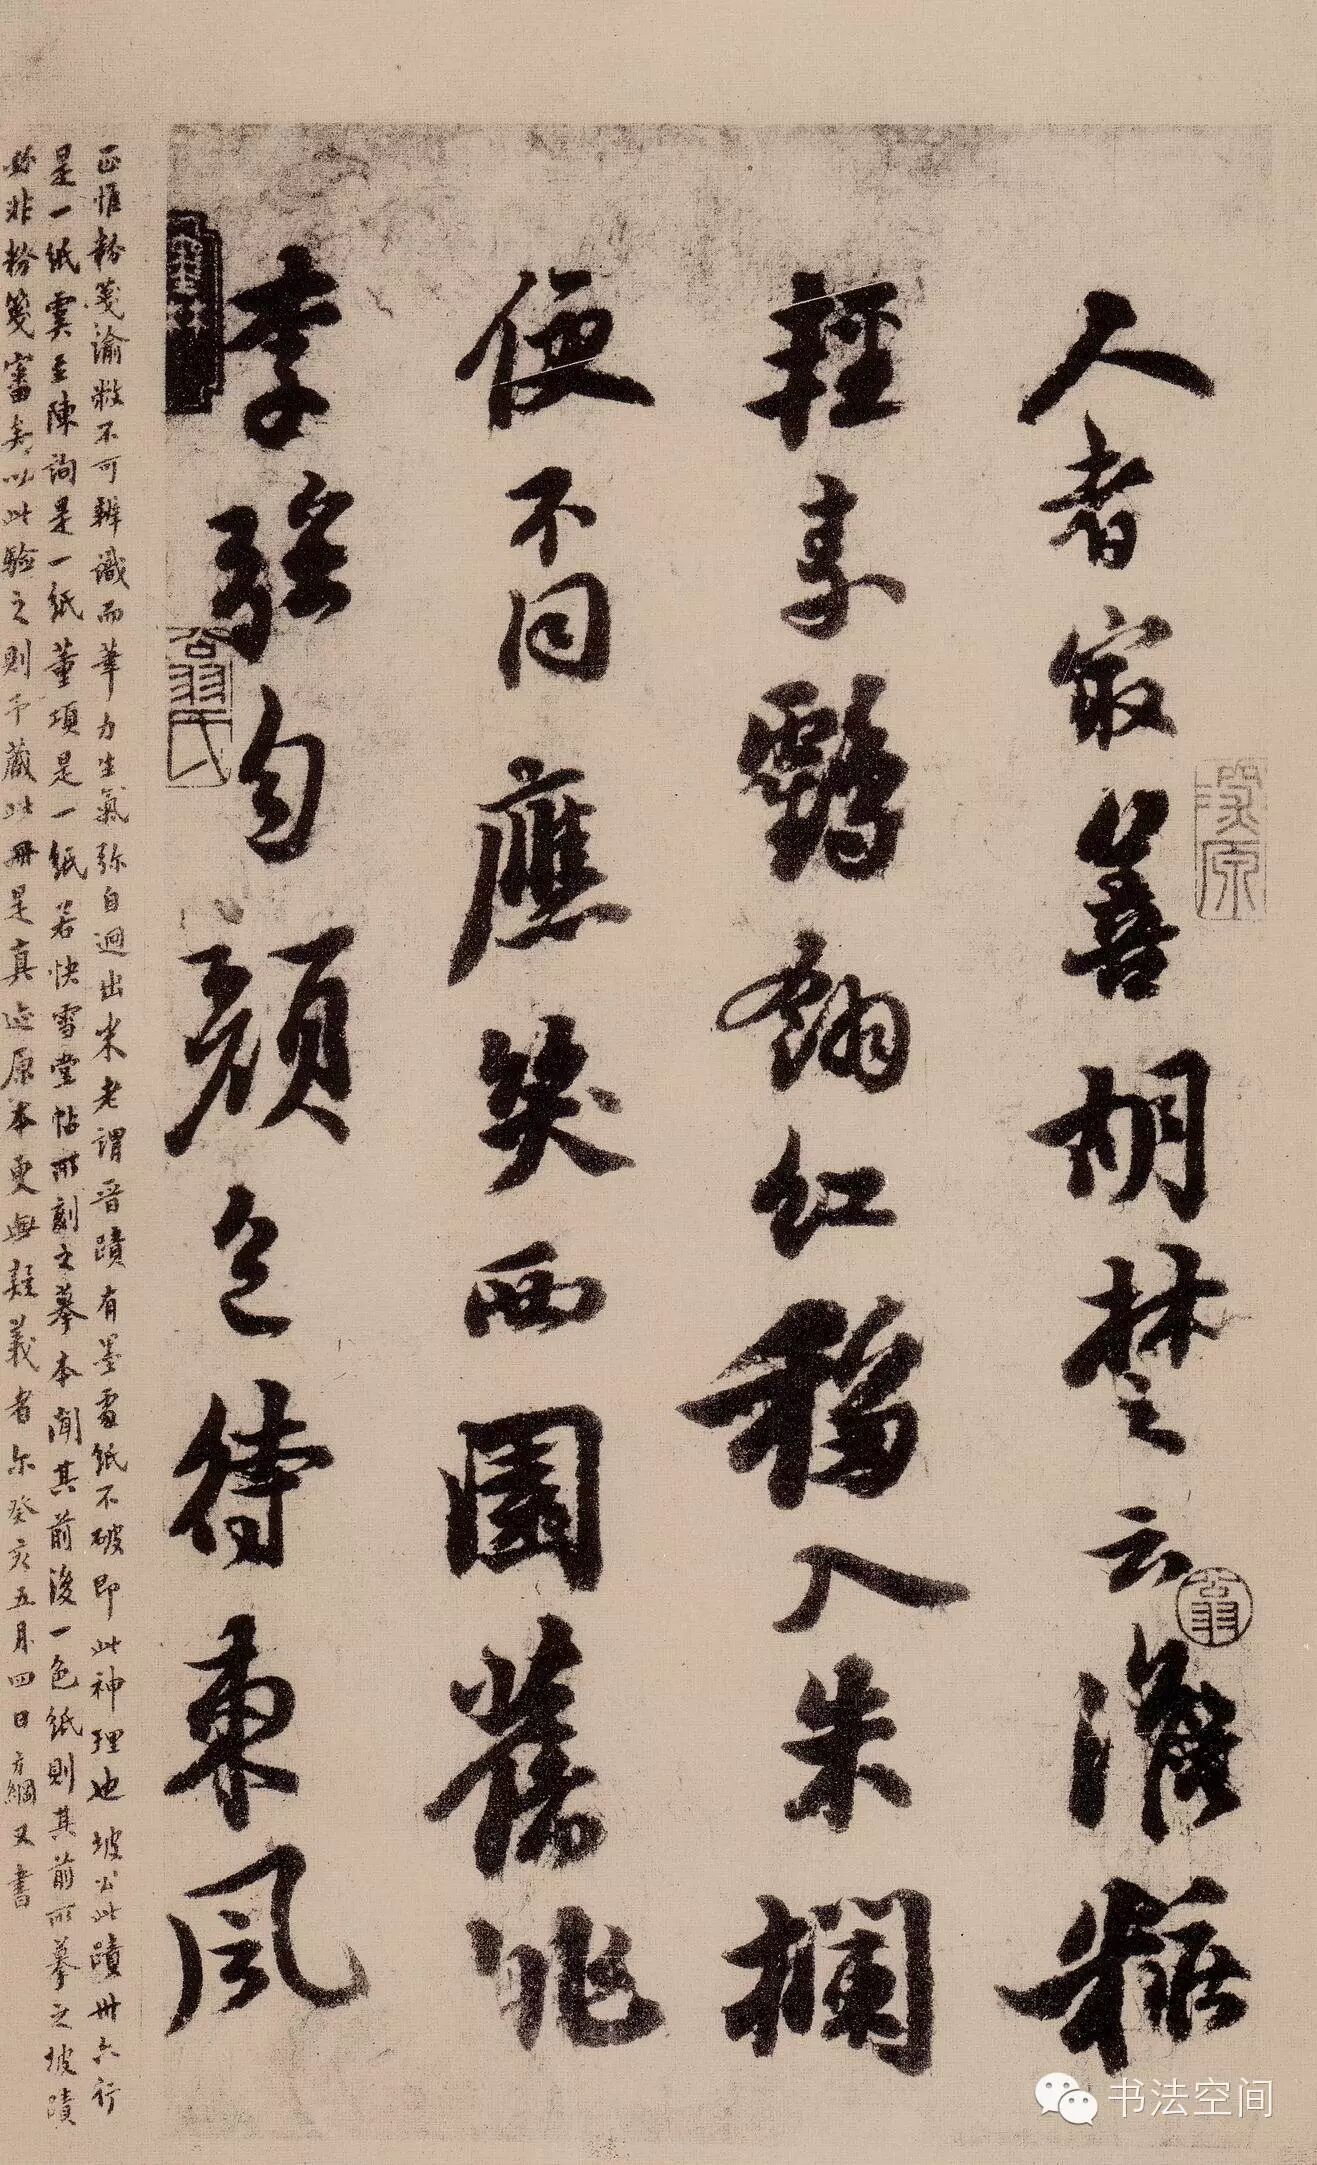 人者最善胡楚云淡粧
輕素鶴翎紅移入朱欄
便不同應笑西園舊桃
李強勻顏色待東風
正惟粉箋渝敝不可辨識而筆力生氣弥自迥出米老謂晉蹟有墨處紙不破即此神理也坡公此蹟卅六行
是一紙虞至陳詢是一紙董項是一紙若快雪堂帖所刻之摹本聞其前後一色紙則其前所摹之坡蹟
必非粉箋審矣以此驗之則予藏此冊是真迹原本更無疑義者尔癸亥五月四日方綱又書
翁氏
书法空间